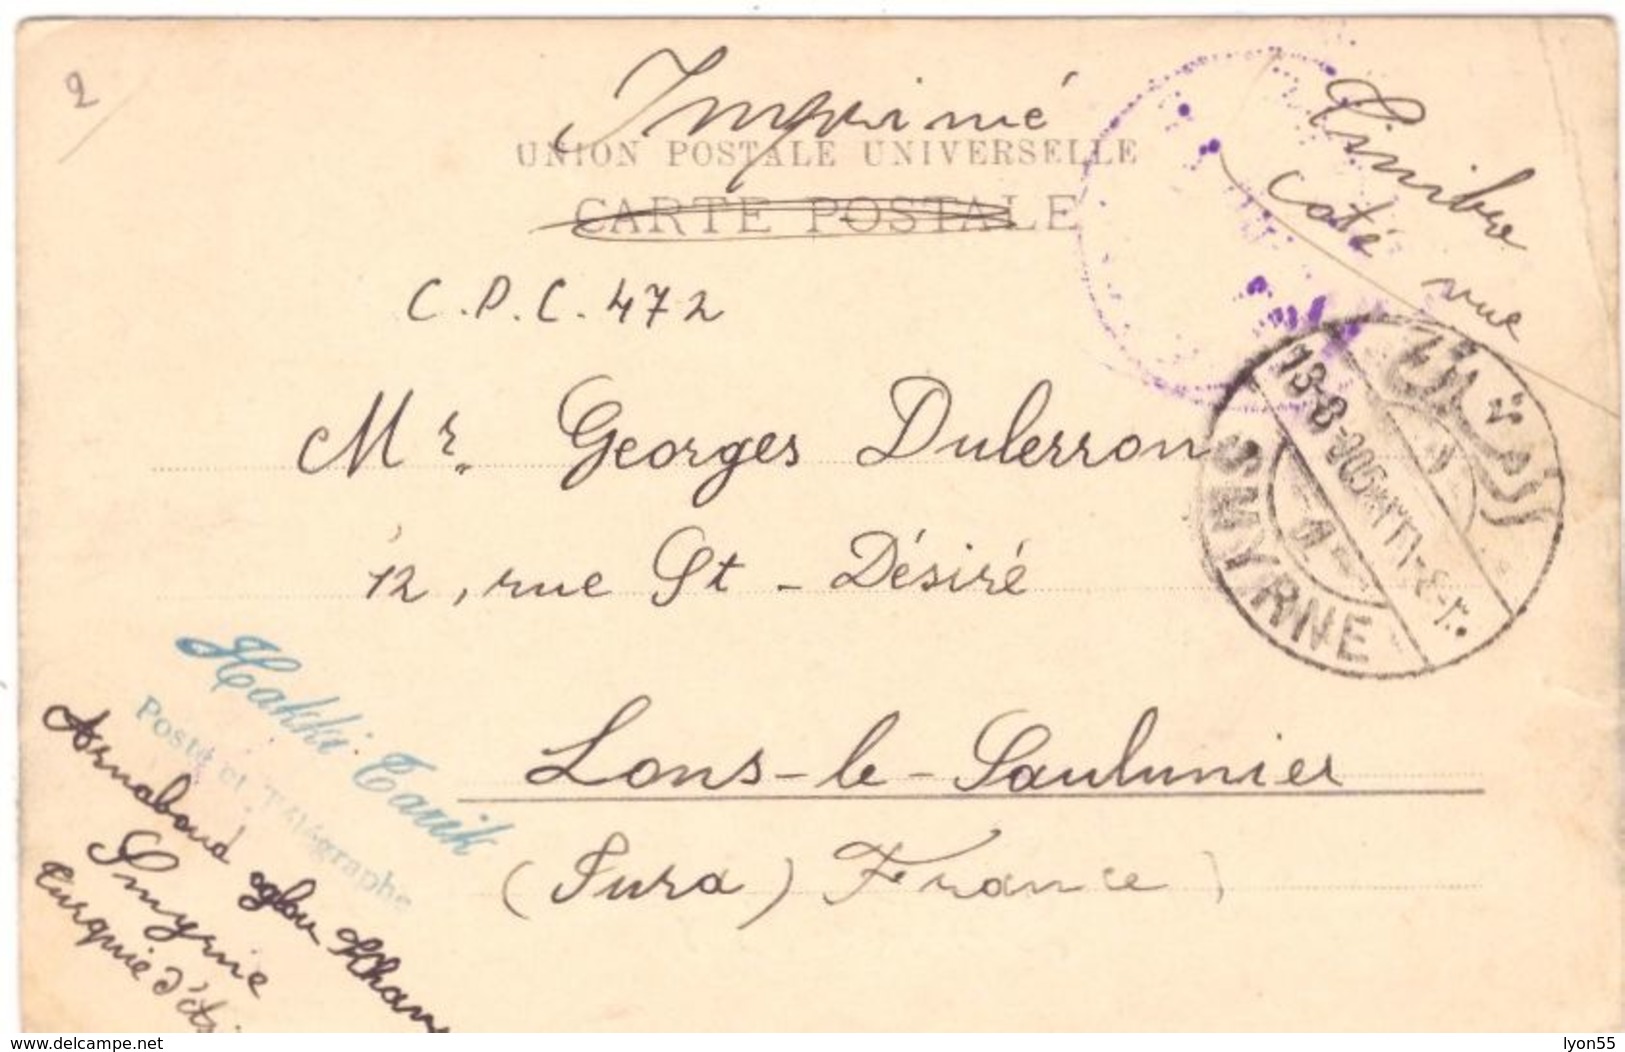 2
Imprimé
UNION POSTALE UNIVERSELLE
CARTE POSTALE
Timbre
coté
vue
C.P.C. 472
Mr. Georges Duberron
12, rue St - Désiré
Lons-le-Saulunier
(Jura) France
SMYRNE
Hakki Tarik
Poste et Télégraphe
Arnaboud oglou Khan
Smyrne
Turquie d'
www.delcampe.net
lyon55